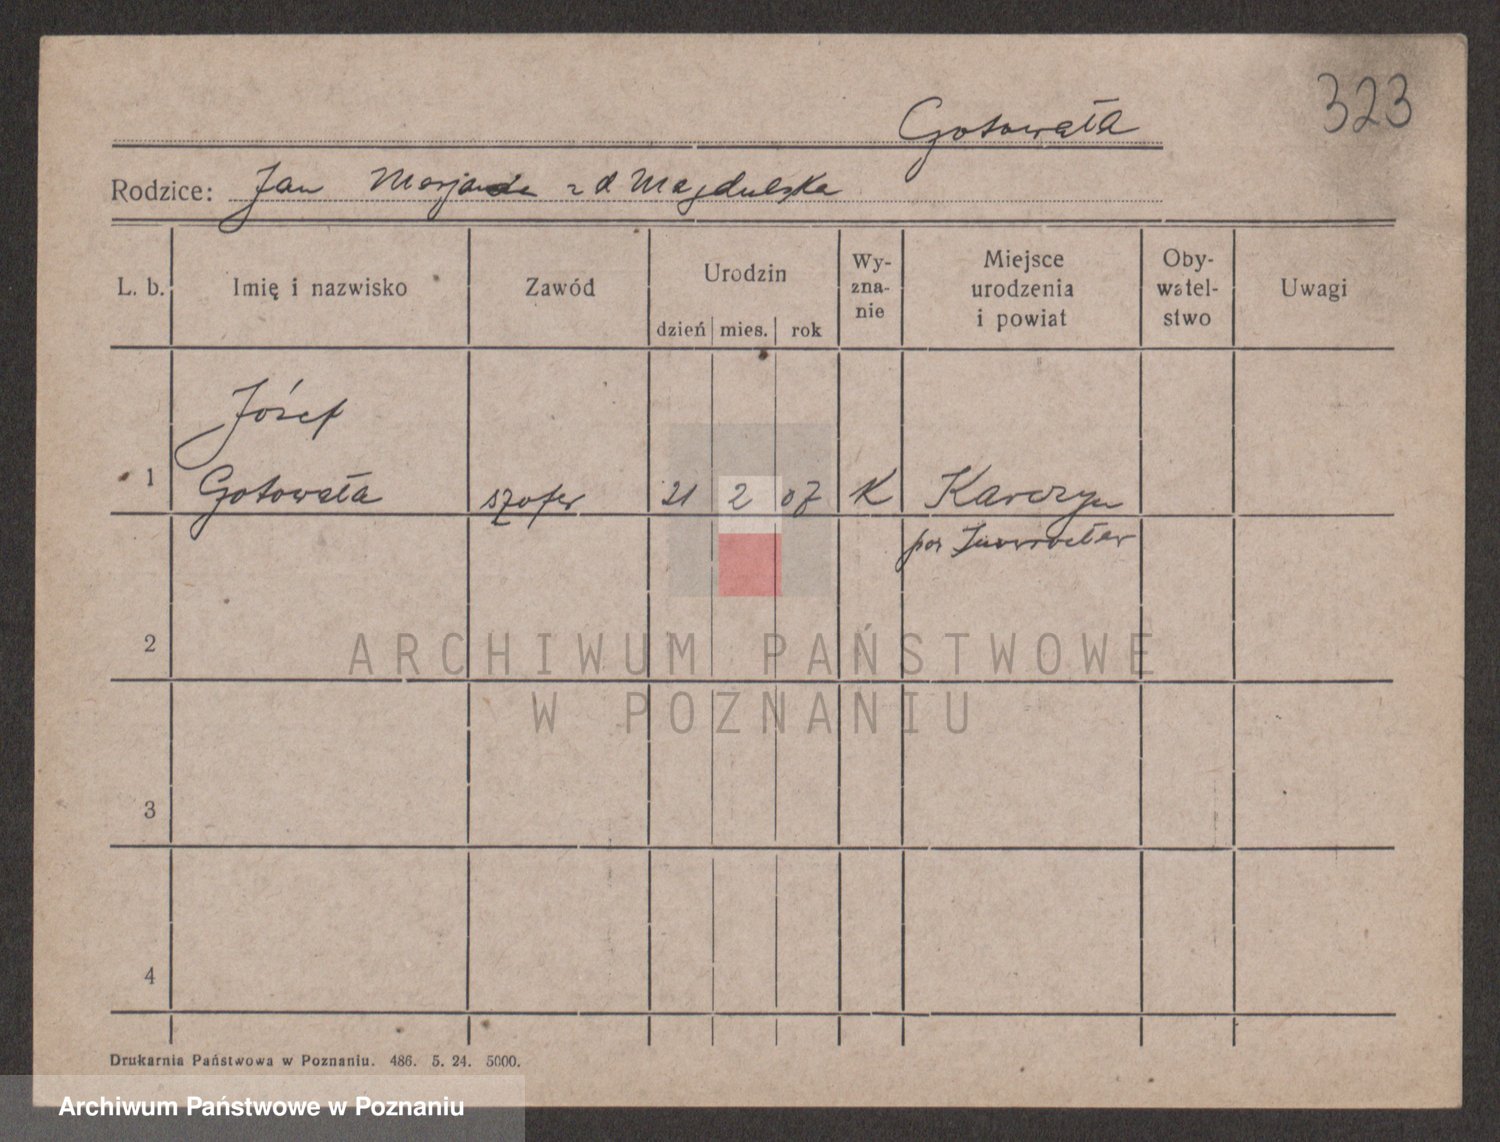 323
Gotowała
Rodzice: Jan Marjanna z d Magdulska
L. b. Imię i nazwisko Zawód Urodzin dzień mies. rok Wy-zna-nie Miejsce urodzenia i powiat Oby-watel-stwo Uwagi
Józef
1 Gotowała szofer 21 2 07 K Karczyn
pow Inowrocław
2
ARCHIWUM PAŃSTWOWE
W POZNANIU
3
4
Drukarnia Państwowa w Poznaniu. 486. 5. 24. 5000.
Archiwum Państwowe w Poznaniu